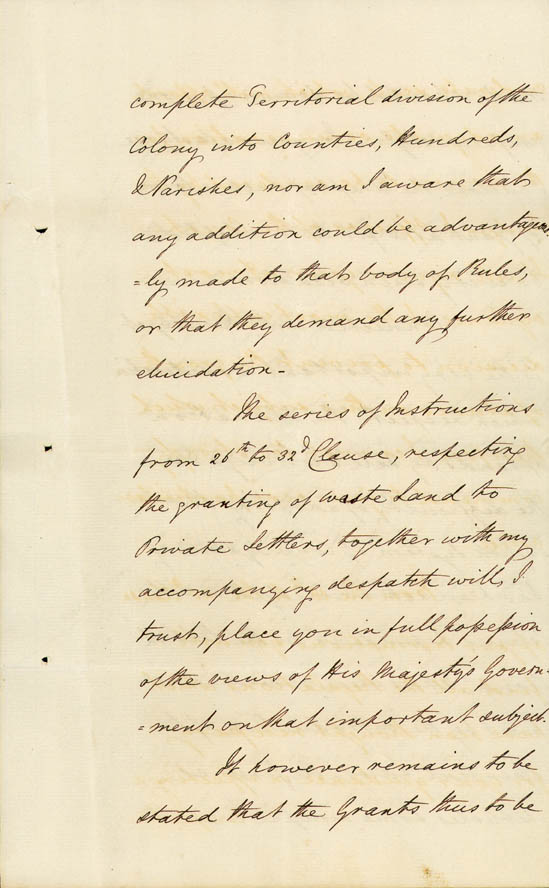 complete Territorial division of the
Colony into Counties, Hundreds,
& Parishes, nor am I aware that
any addition could be advantageous
=ly made to that body of Rules,
or that they demand any further
elucidation -
The series of Instructions
from 26th to 32d Clause, respecting
the granting of waste Land to
Private Settlers, together with my
accompanying despatch will, I
trust, place you in full possession
of the views of His Majesty's Govern-
=ment on that important subject.
It however remains to be
stated that the Grants thus to be